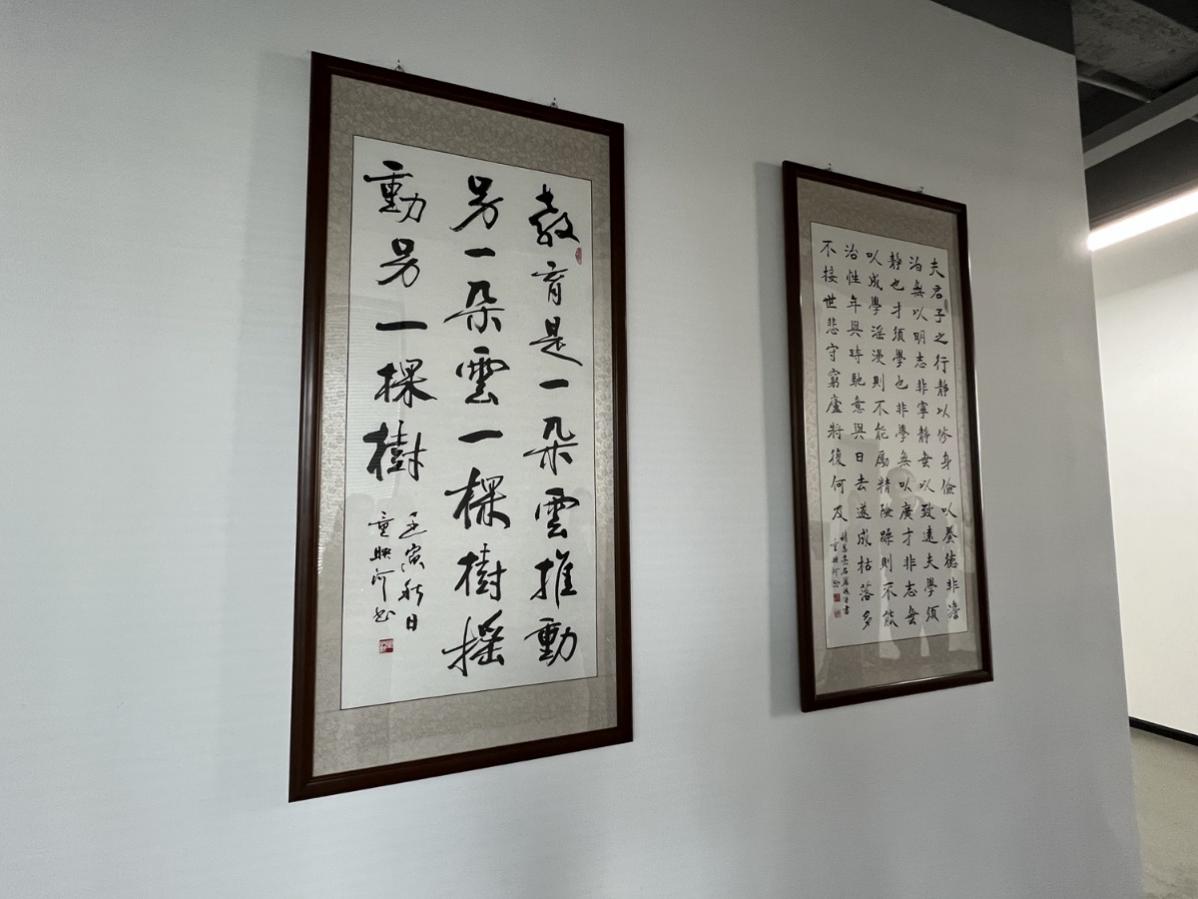 教育是一朵雲推動
另一朵雲一棵樹搖
動另一棵樹
壬寅秋日
童
夫君子之行靜以修身儉以養德非澹
泊無以明志非寧靜無以致遠夫學須
靜也才須學也非學無以廣才非志無
以成學淫漫則不能勵精險躁則不能
治性年與時馳意與日去遂成枯落多
不接世悲守窮廬將復何及